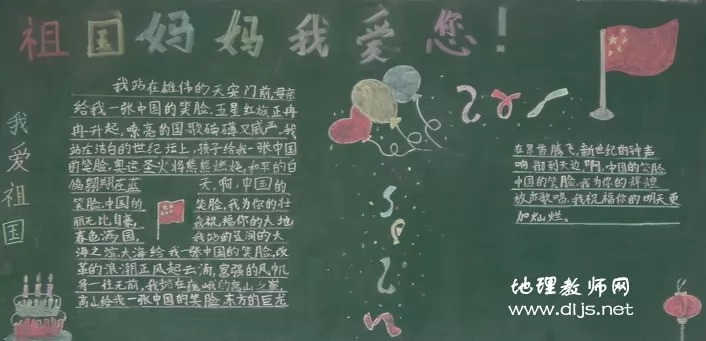 祖国妈妈我爱您！
我爱祖国
我站在雄伟的天安门前,母亲
给我一张中国的笑脸,五星红旗正冉
冉升起,嘹亮的国歌磅礴又威严,我
站在洁白的世纪坛上,孩子给我一张中国
的笑脸,奥运圣火将熊熊燃烧,和平的白
鸽翱翔在蓝天,啊,中国的
笑脸,中国的笑脸,我为你的壮
丽无比自豪,我祝福你的大地
春色满园,我站的辽阔的大
海之滨,大海给我一张中国的笑脸,改
革的浪潮正风起云涌,富强的风帆
勇往无前,我站在巍峨的高山之巅,
高山给我一张中国的笑脸,东方的巨龙
在昂首腾飞,新世纪的钟声
响彻到天边,啊,中国的笑脸
中国的笑脸,我为你的辉煌
放声歌唱,我祝福你的明天更
加灿烂。
地理教师网
www.dljs.net